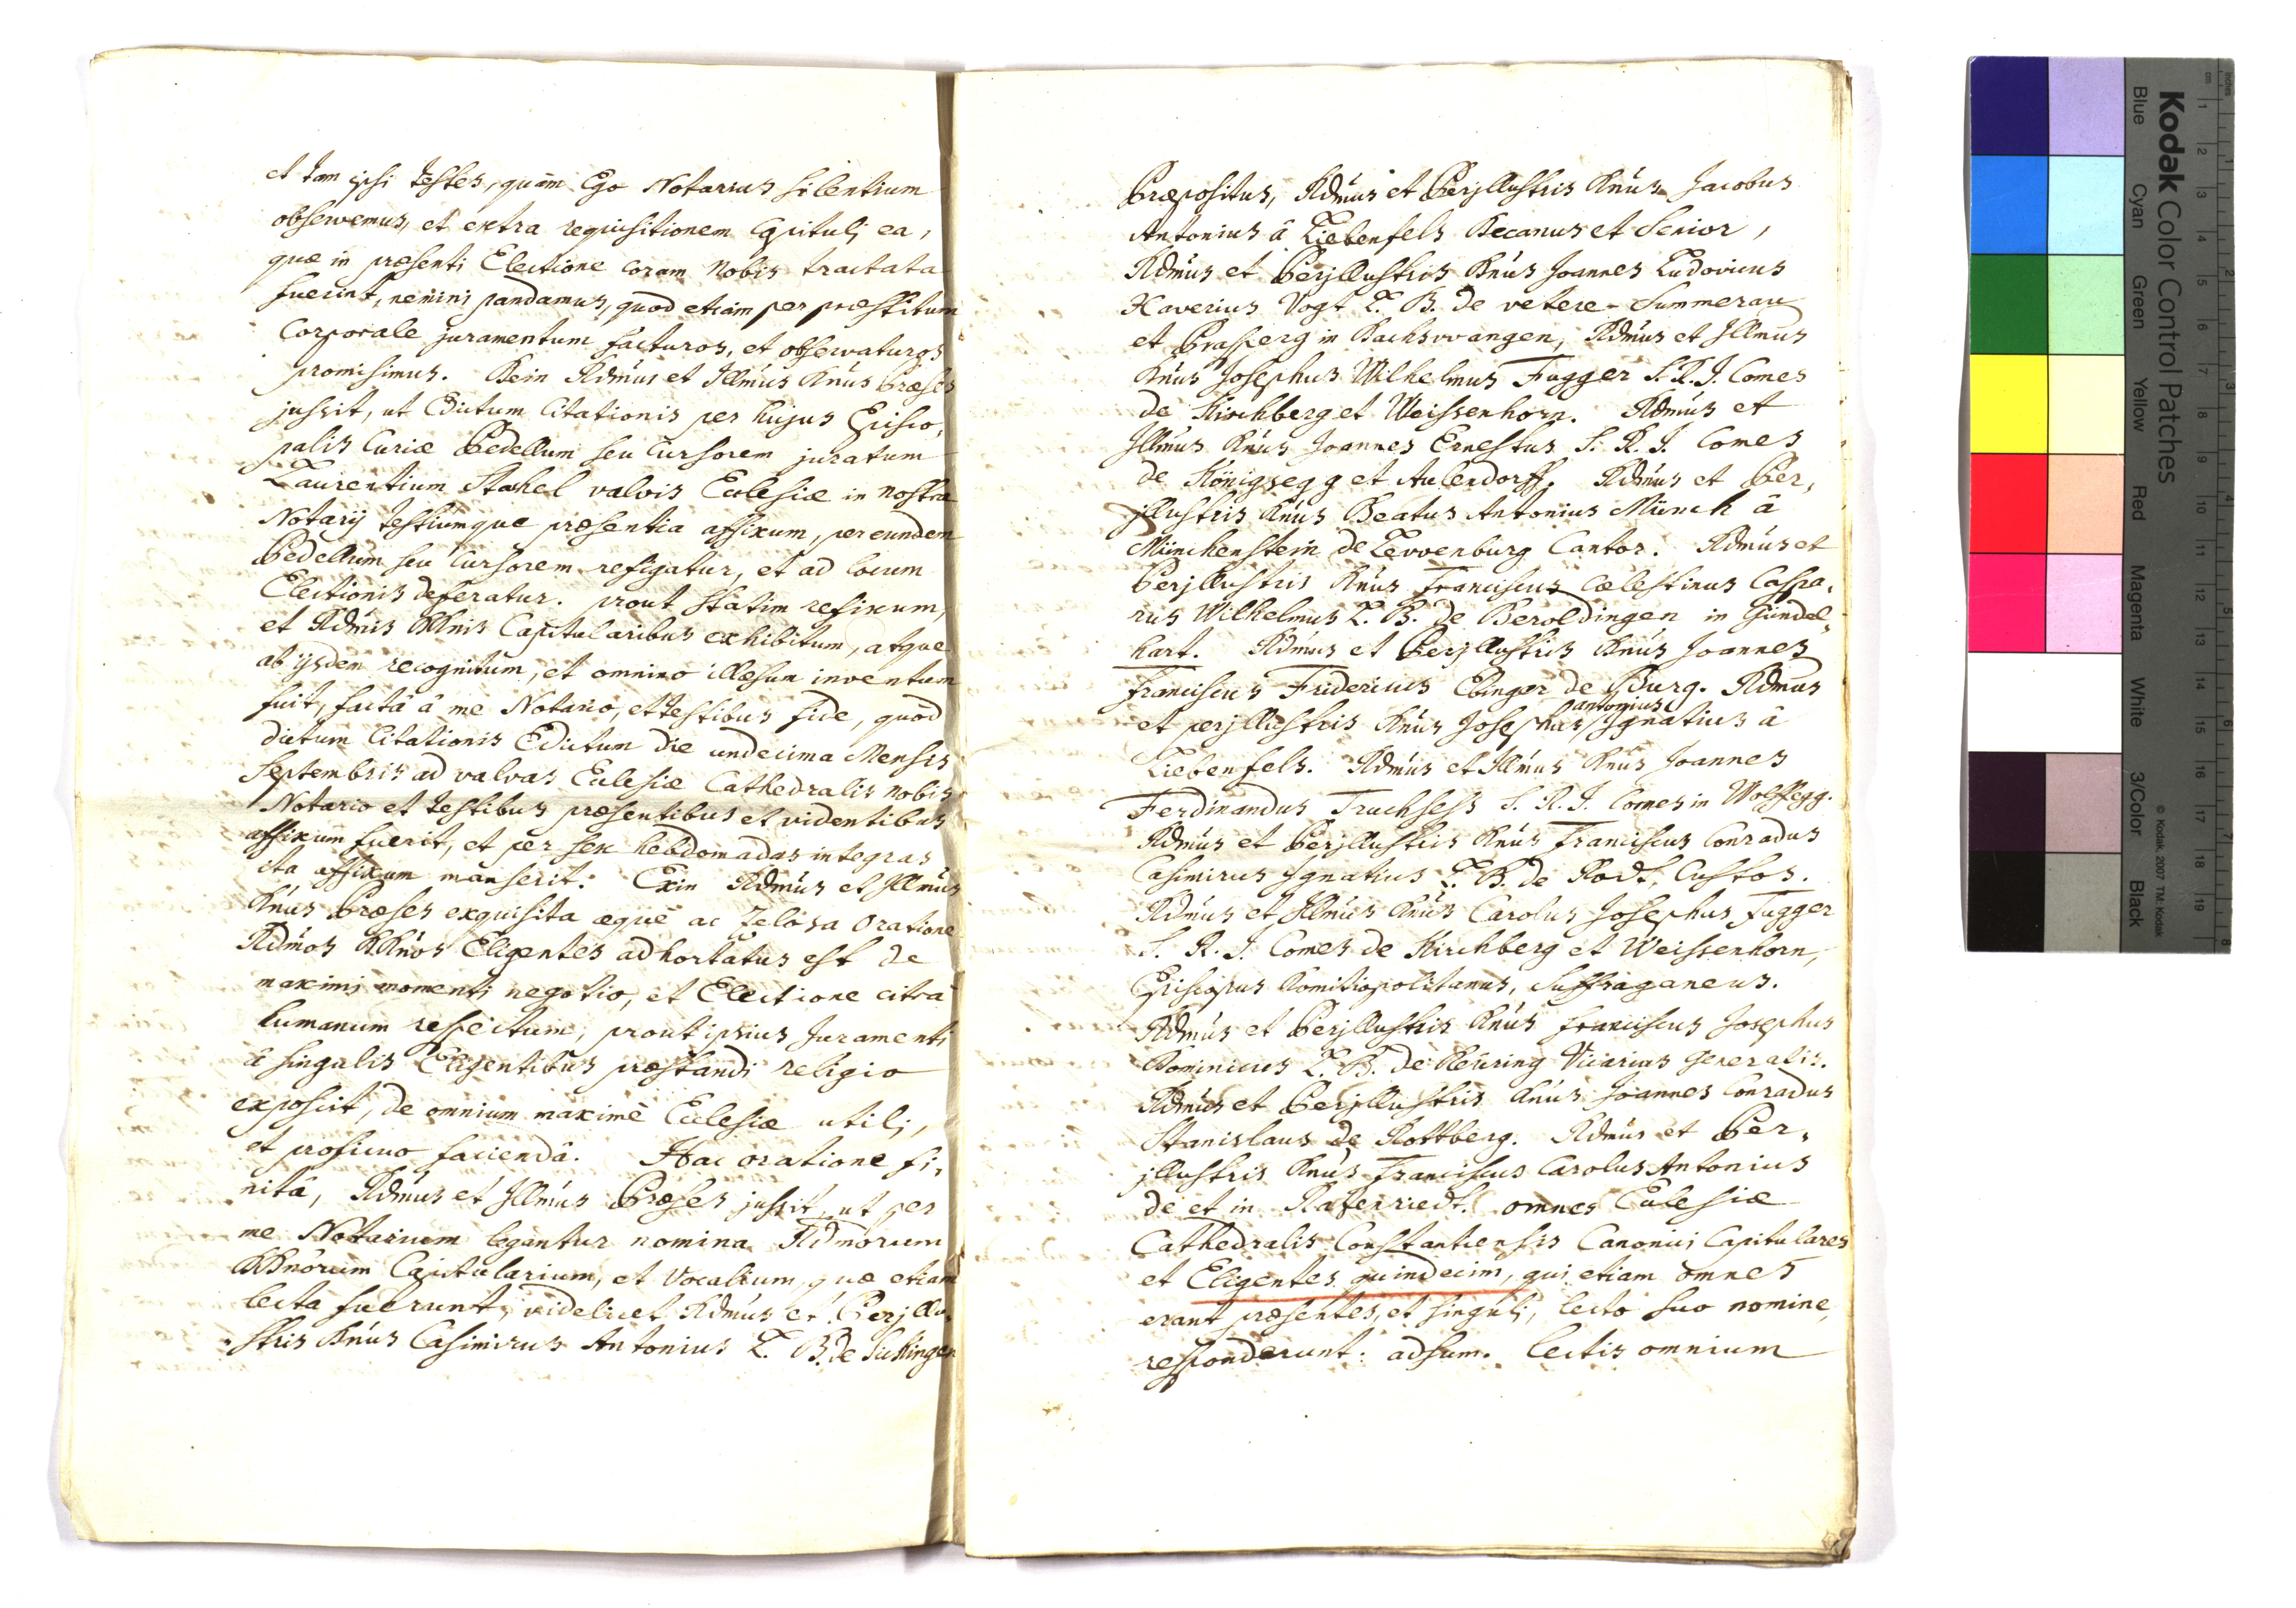 et tam ipsi testes, quàm Ego Notarius silentium
observemus, et extra requisitionem Capitulj ea,
quæ in præsenti Electione coram Nobis tractata
fuerint, nemini pandamus, quod etiam per præstitum
Corporale juramentum facturos, et observaturos
promisimus. Dein Rdmus et Illmus Dnus Præses
jussit, ut Edictum Citationis per hujus Episco,
palis Curiæ Pedellum seu Cursorem juratum
Laurentium Stahel valvis Ecclesiæ in nostra
Notarij testiumque præsentia affixum, per eundem
Pedellum seu Cursorem refigatur, et ad locum
Electionis deferatur. prout statim refixum,
et Rdmis DDnis Capitularibus exhibitum, atque
ab ijsdem recognitum, et omnino illæsum inventum
fuit, factâ â me Notario, et testibus fide, quòd
dictum Citationis Edictum die undecima Mensis
Septembris ad valvas Ecclesiæ Cathedralis nobis
Notario et testibus præsentibus et videntibus
affixum fuerit, et per sex hebdomadas integras
ita affixum manserit. Exin Rdmus et Illmus
Dnus Præses exquisita æquè ac zelosa oratione
Rdmos DDnos Eligentes adhortatus est de
maximi momenti negotio, et Electione citra
humanum respectum, prout ipsius Juramenti
â singulis Eligentibus præstandi religio
exposcit, de omnium maximè Ecclesiæ utili,
et proficuo faciendâ. Hac oratione fi,
nitâ, Rdmus et Illmus Præses jussit, ut per
me Notarium legantur nomina Rdmorum
DDnorum Capitularium, et Vocalium, quæ etiam
lecta fuerunt, videlicet Rdmus et Perjllu,
stris Dnus Casimirus Antonius L. B. de Sickingen
Præpositus, Rdmus et Perjllustris Dnus Jacobus
Antonius â Liebenfels Decanus et Senior,
Rdmus et Perjllustris Dnus Joannes Ludovicus
Xaverius Vogt L. B. de vetere-Summerau
et Prasperg in Bachsvvangen, Rdmus et Jllmus
Dnus Josephus Wilhelmus Fugger S. R. J. Comes
de Kirchberg et Weissenhorn. Rdmus et
Jllmus Dnus Joannes Ernestus S. R. J. Comes
de Königsegg et Aulendorff. Rdmus et Per,
jllustris Dnus Beatus Antonius Münch â
Münchenstein de Levvenburg Cantor. Rdmus et
Perjllustris Dnus Franciscus Cælestinus Caspa,
rus Wilhelmus L. B. de Beroldingen in Gündel,
hart. Rdmus et Perjllustris Dnus Joannes
Franciscus Fridericus Ebinger de Burg. Rdmus
et perjllustris Dnus Josephus antonius Jgnatius â
Liebenfels. Rdmus et Jllmus Dnus Joannes
Ferdinandus Truchsess S. R. J. Comes in Wolffegg.
Rdmus et Perjllustris Dnus Franciscus Conradus
Casimirus Jgnatius L. B. de Rodt, Custos.
Rdmus et Jllmus Dnus Carolus Josephus Fugger
S. R. J. Comes de Kirchberg et Weissenhorn,
Episcopus Domitiopolitanus, Suffraganeus.
Rdmus et Perjllustris Dnus Franciscus Josephus
Dominicus L. B. de Deüring Vicarius Generalis.
Rdmus et Perjllustris Dnus Joannes Conradus
Stanislaus de Rottberg. Rdmus et Per,
jllustris Dnus Franciscus Carolus Antonius
de et in Ratzenriedt. omnes Ecclesiæ
Cathedralis Constantiensis Canonici Capitulares
et Eligentes quindecim, qui etiam omnes
erant præsentes, et singuli, lecto suo nomine,
responderunt: adsum. lectis omnium
Kodak Color Control Patches
Blue Cyan Green Yellow Red Magenta White 3/Color Black
© Kodak, 2007 TM: Kodak
inches 1 2 3 4 5 6 7 8
cm 1 2 3 4 5 6 7 8 9 10 11 12 13 14 15 16 17 18 19